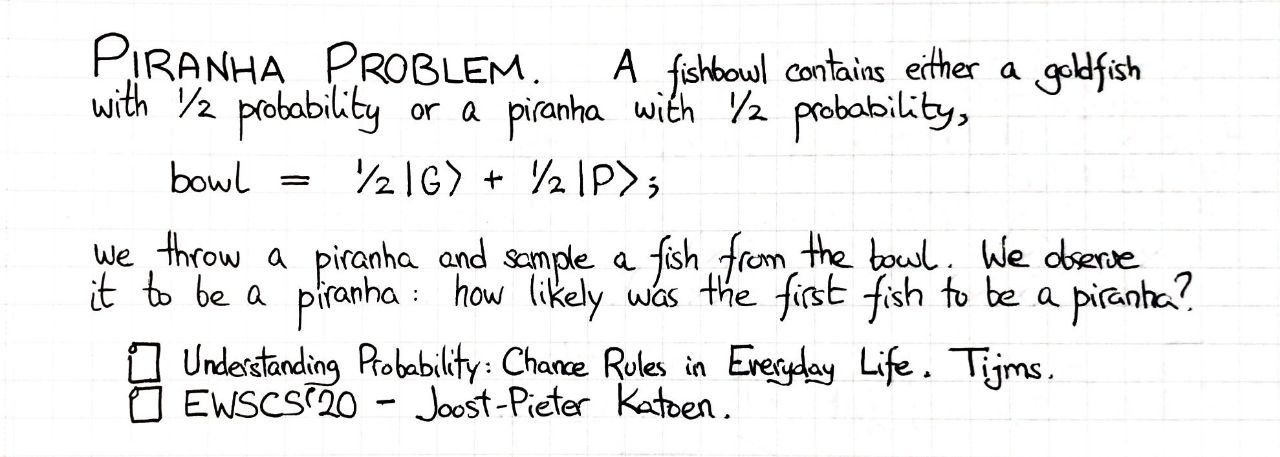 PIRANHA PROBLEM. A fishbowl contains either a goldfish
with 1/2 probability or a piranha with 1/2 probability,
bowl = 1/2 |G⟩ + 1/2 |P⟩;
we throw a piranha and sample a fish from the bowl. We observe
it to be a piranha: how likely was the first fish to be a piranha?
☐ Understanding Probability: Chance Rules in Everyday Life. Tijms.
☐ EWSCS'20 - Joost-Pieter Katoen.